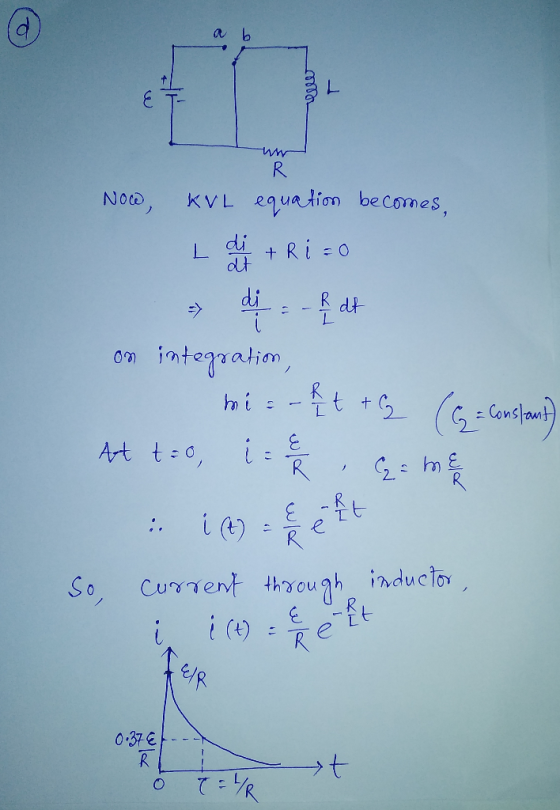 d
a b
+
ε -
L
R
Now, KVL equation becomes,
L di/dt + Ri = 0
⇒ di/i = - R/L dt
on integration,
ln i = - R/L t + C₂ (C₂ = Constant)
At t = 0, i = ε/R , C₂ = ln ε/R
∴ i(t) = ε/R e^(-R/L t)
So, Current through inductor,
i(t) = ε/R e^(-R/L t)
i
ε/R
0.37 ε/R
0 τ = L/R t